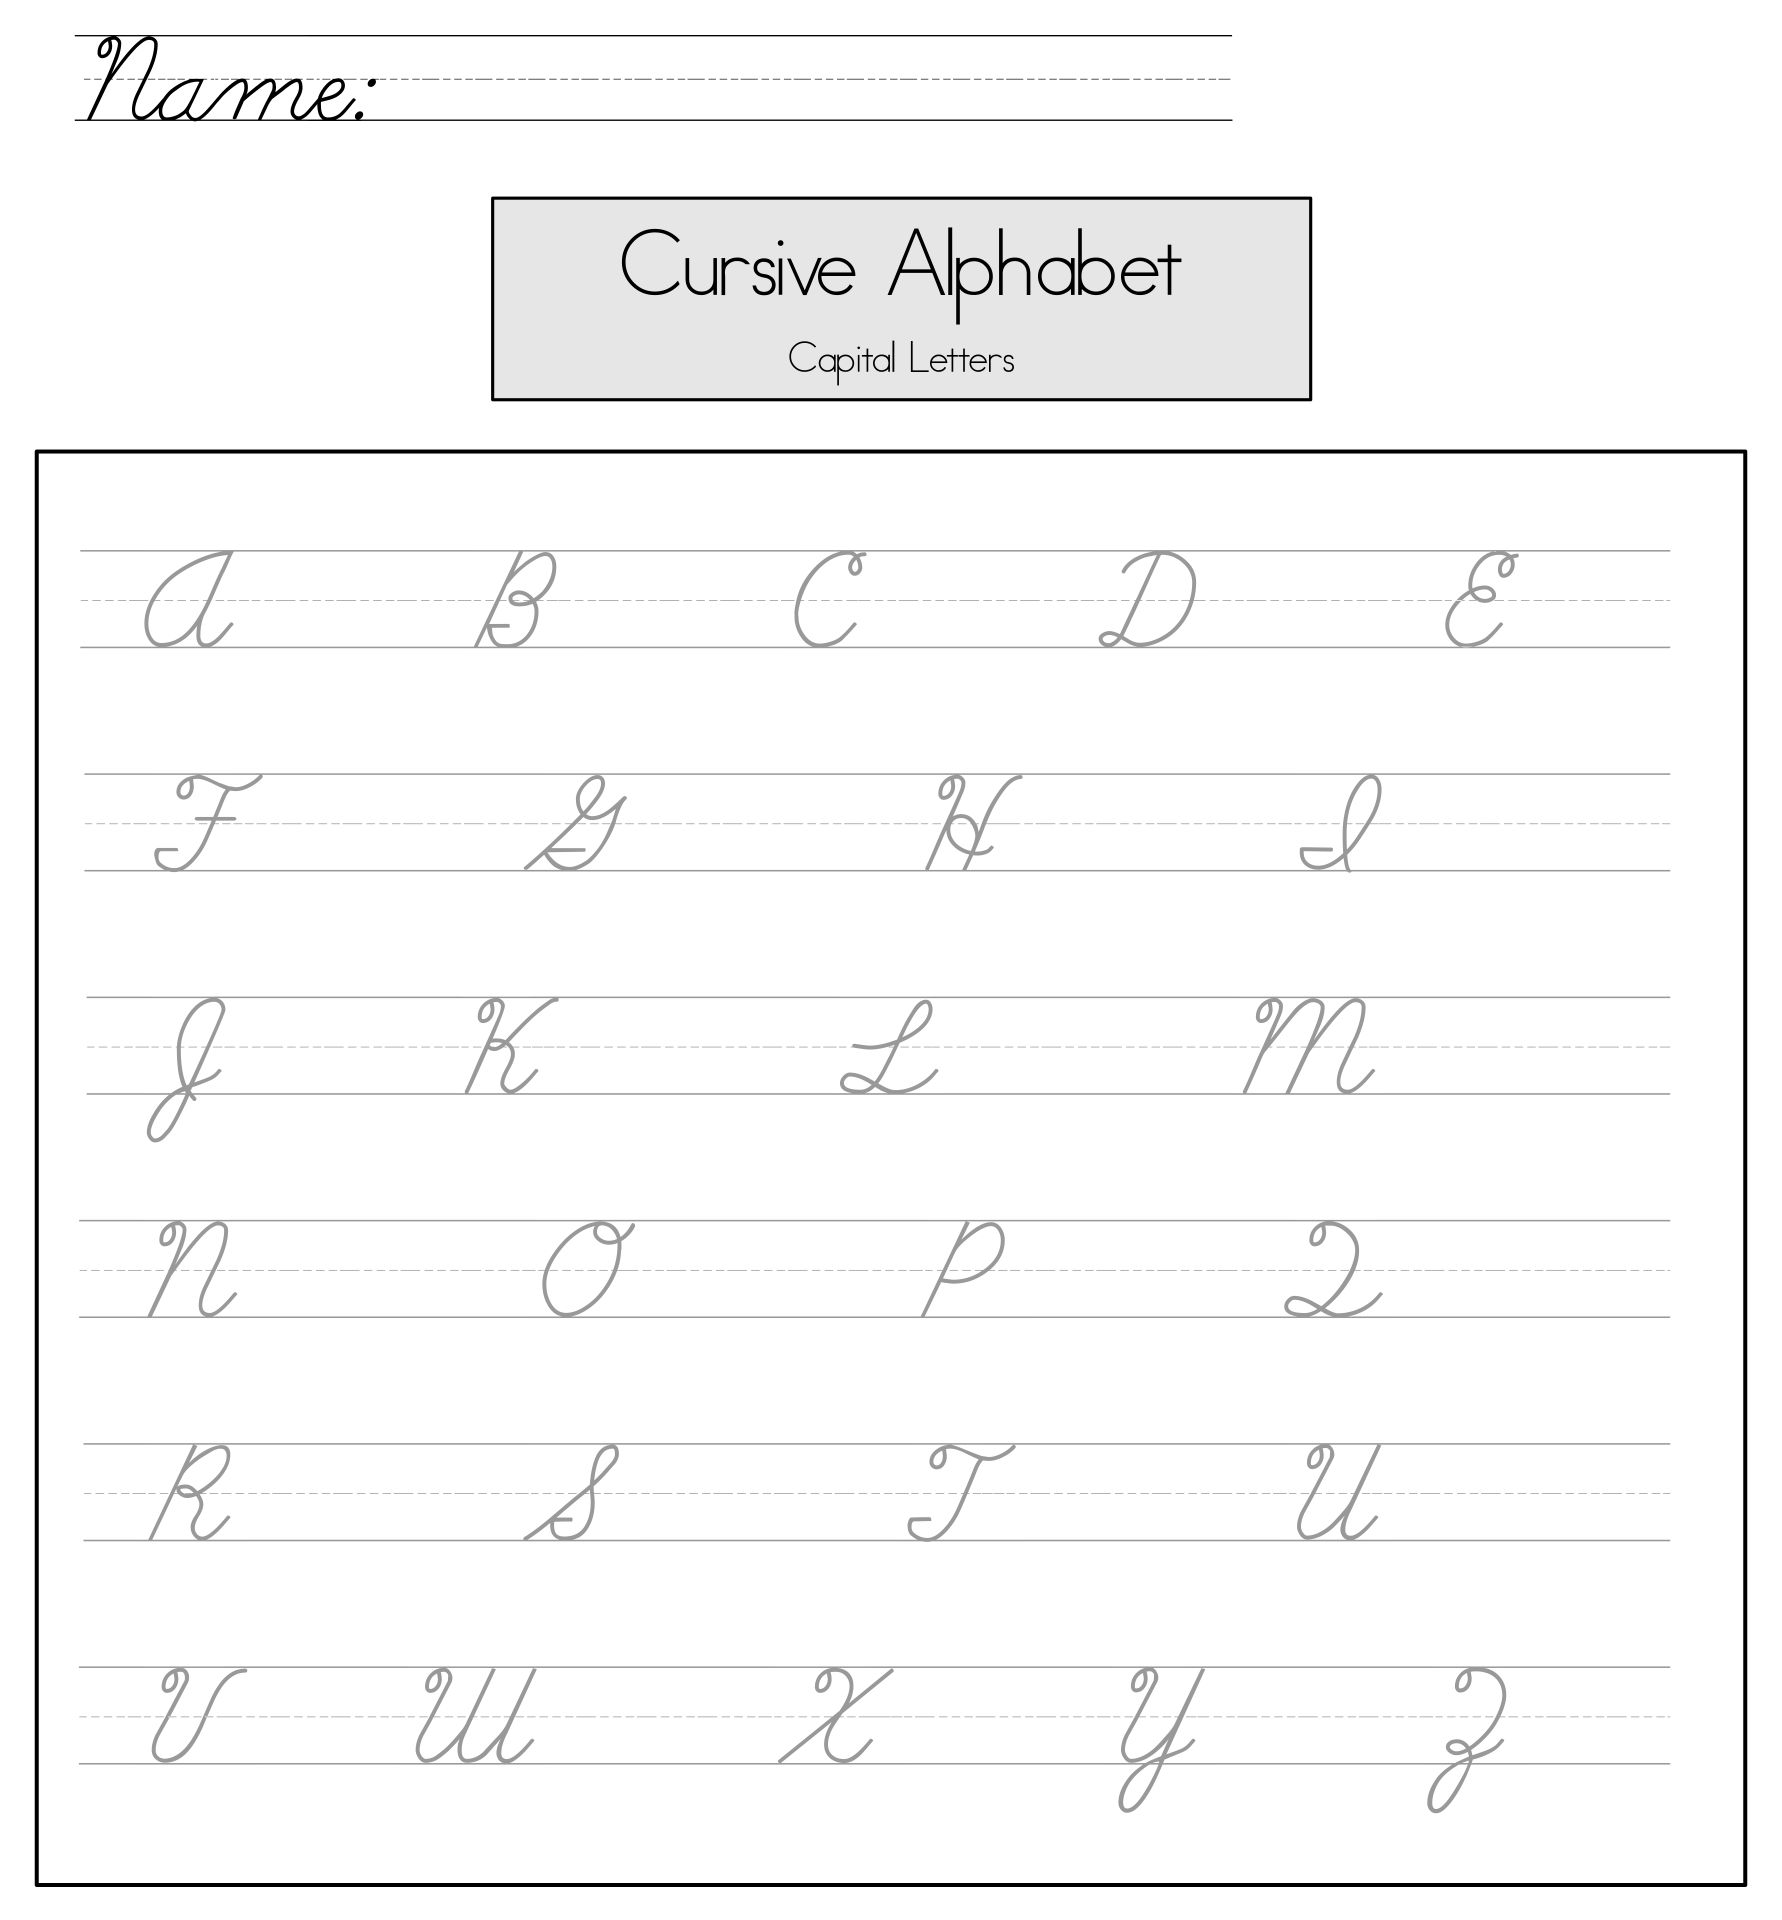 Name:
Cursive Alphabet
Capital Letters
A B C D E
F G H I
J K L M
N O P Q
R S T U
V W X Y Z